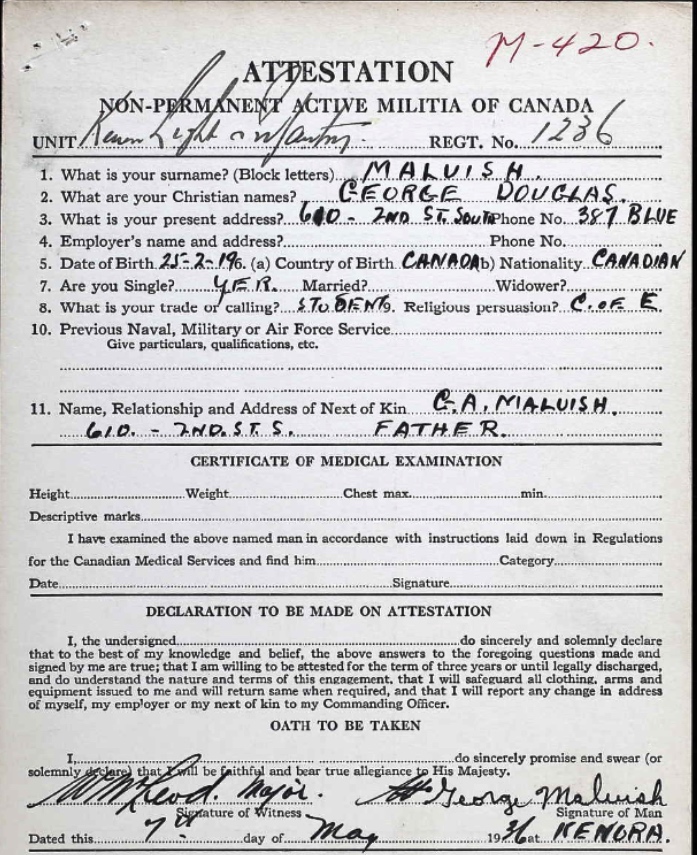 M-420.
ATTESTATION
NON-PERMANENT ACTIVE MILITIA OF CANADA
UNIT Light Infantry. REGT. No. 1236
1. What is your surname? (Block letters) MALUISH.
2. What are your Christian names? GEORGE DOUGLAS.
3. What is your present address? 610 - 2ND ST. SOUTH Phone No. 387 BLUE
4. Employer's name and address? Phone No.
5. Date of Birth 25-2-19 6. (a) Country of Birth CANADA b) Nationality CANADIAN
7. Are you Single? YER. Married? Widower?
8. What is your trade or calling? STUDENT 9. Religious persuasion? C. of E.
10. Previous Naval, Military or Air Force Service
Give particulars, qualifications, etc.
11. Name, Relationship and Address of Next of Kin G.A. MALUISH.
610. - 2ND. ST. S. FATHER.
CERTIFICATE OF MEDICAL EXAMINATION
Height Weight Chest max. min.
Descriptive marks
I have examined the above named man in accordance with instructions laid down in Regulations
for the Canadian Medical Services and find him Category
Date Signature
DECLARATION TO BE MADE ON ATTESTATION
I, the undersigned do sincerely and solemnly declare
that to the best of my knowledge and belief, the above answers to the foregoing questions made and
signed by me are true; that I am willing to be attested for the term of three years or until legally discharged,
and do understand the nature and terms of this engagement, that I will safeguard all clothing, arms and
equipment issued to me and will return same when required, and that I will report any change in address
of myself, my employer or my next of kin to my Commanding Officer.
OATH TO BE TAKEN
I, do sincerely promise and swear (or
solemnly declare) that I will be faithful and bear true allegiance to His Majesty.
McLeod. Major. George Maluish
Signature of Witness Signature of Man
Dated this 7th day of May 1936 at KENORA.